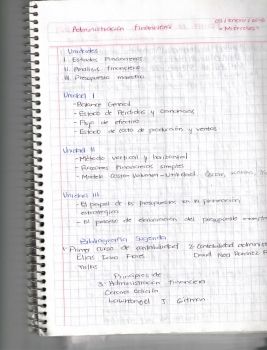 Administración Financiera
Miércoles
Unidades
I. Estados Financieros
II. Análisis financiero
III. Presupuesto maestro
Unidad I
- Balance General
- Estado de Perdidas y Ganancias
- Flujo de efectivo
- Estado de costo de producción y ventas
Unidad II
- Método vertical y horizontal
- Razones financieras simples
- Modelo Costo-Volumen-Utilidad
Unidad III
- El papel de los presupuestos en la planeación
estratégica
- El proceso de elaboración del presupuesto
Bibliografía Sugerida
1- Primer curso de contabilidad 2- Contabilidad
Elías Lara Flores David Noel Ramírez
Trillas
Principios de
3- Administración Financiera
Lawrence J. Gitman